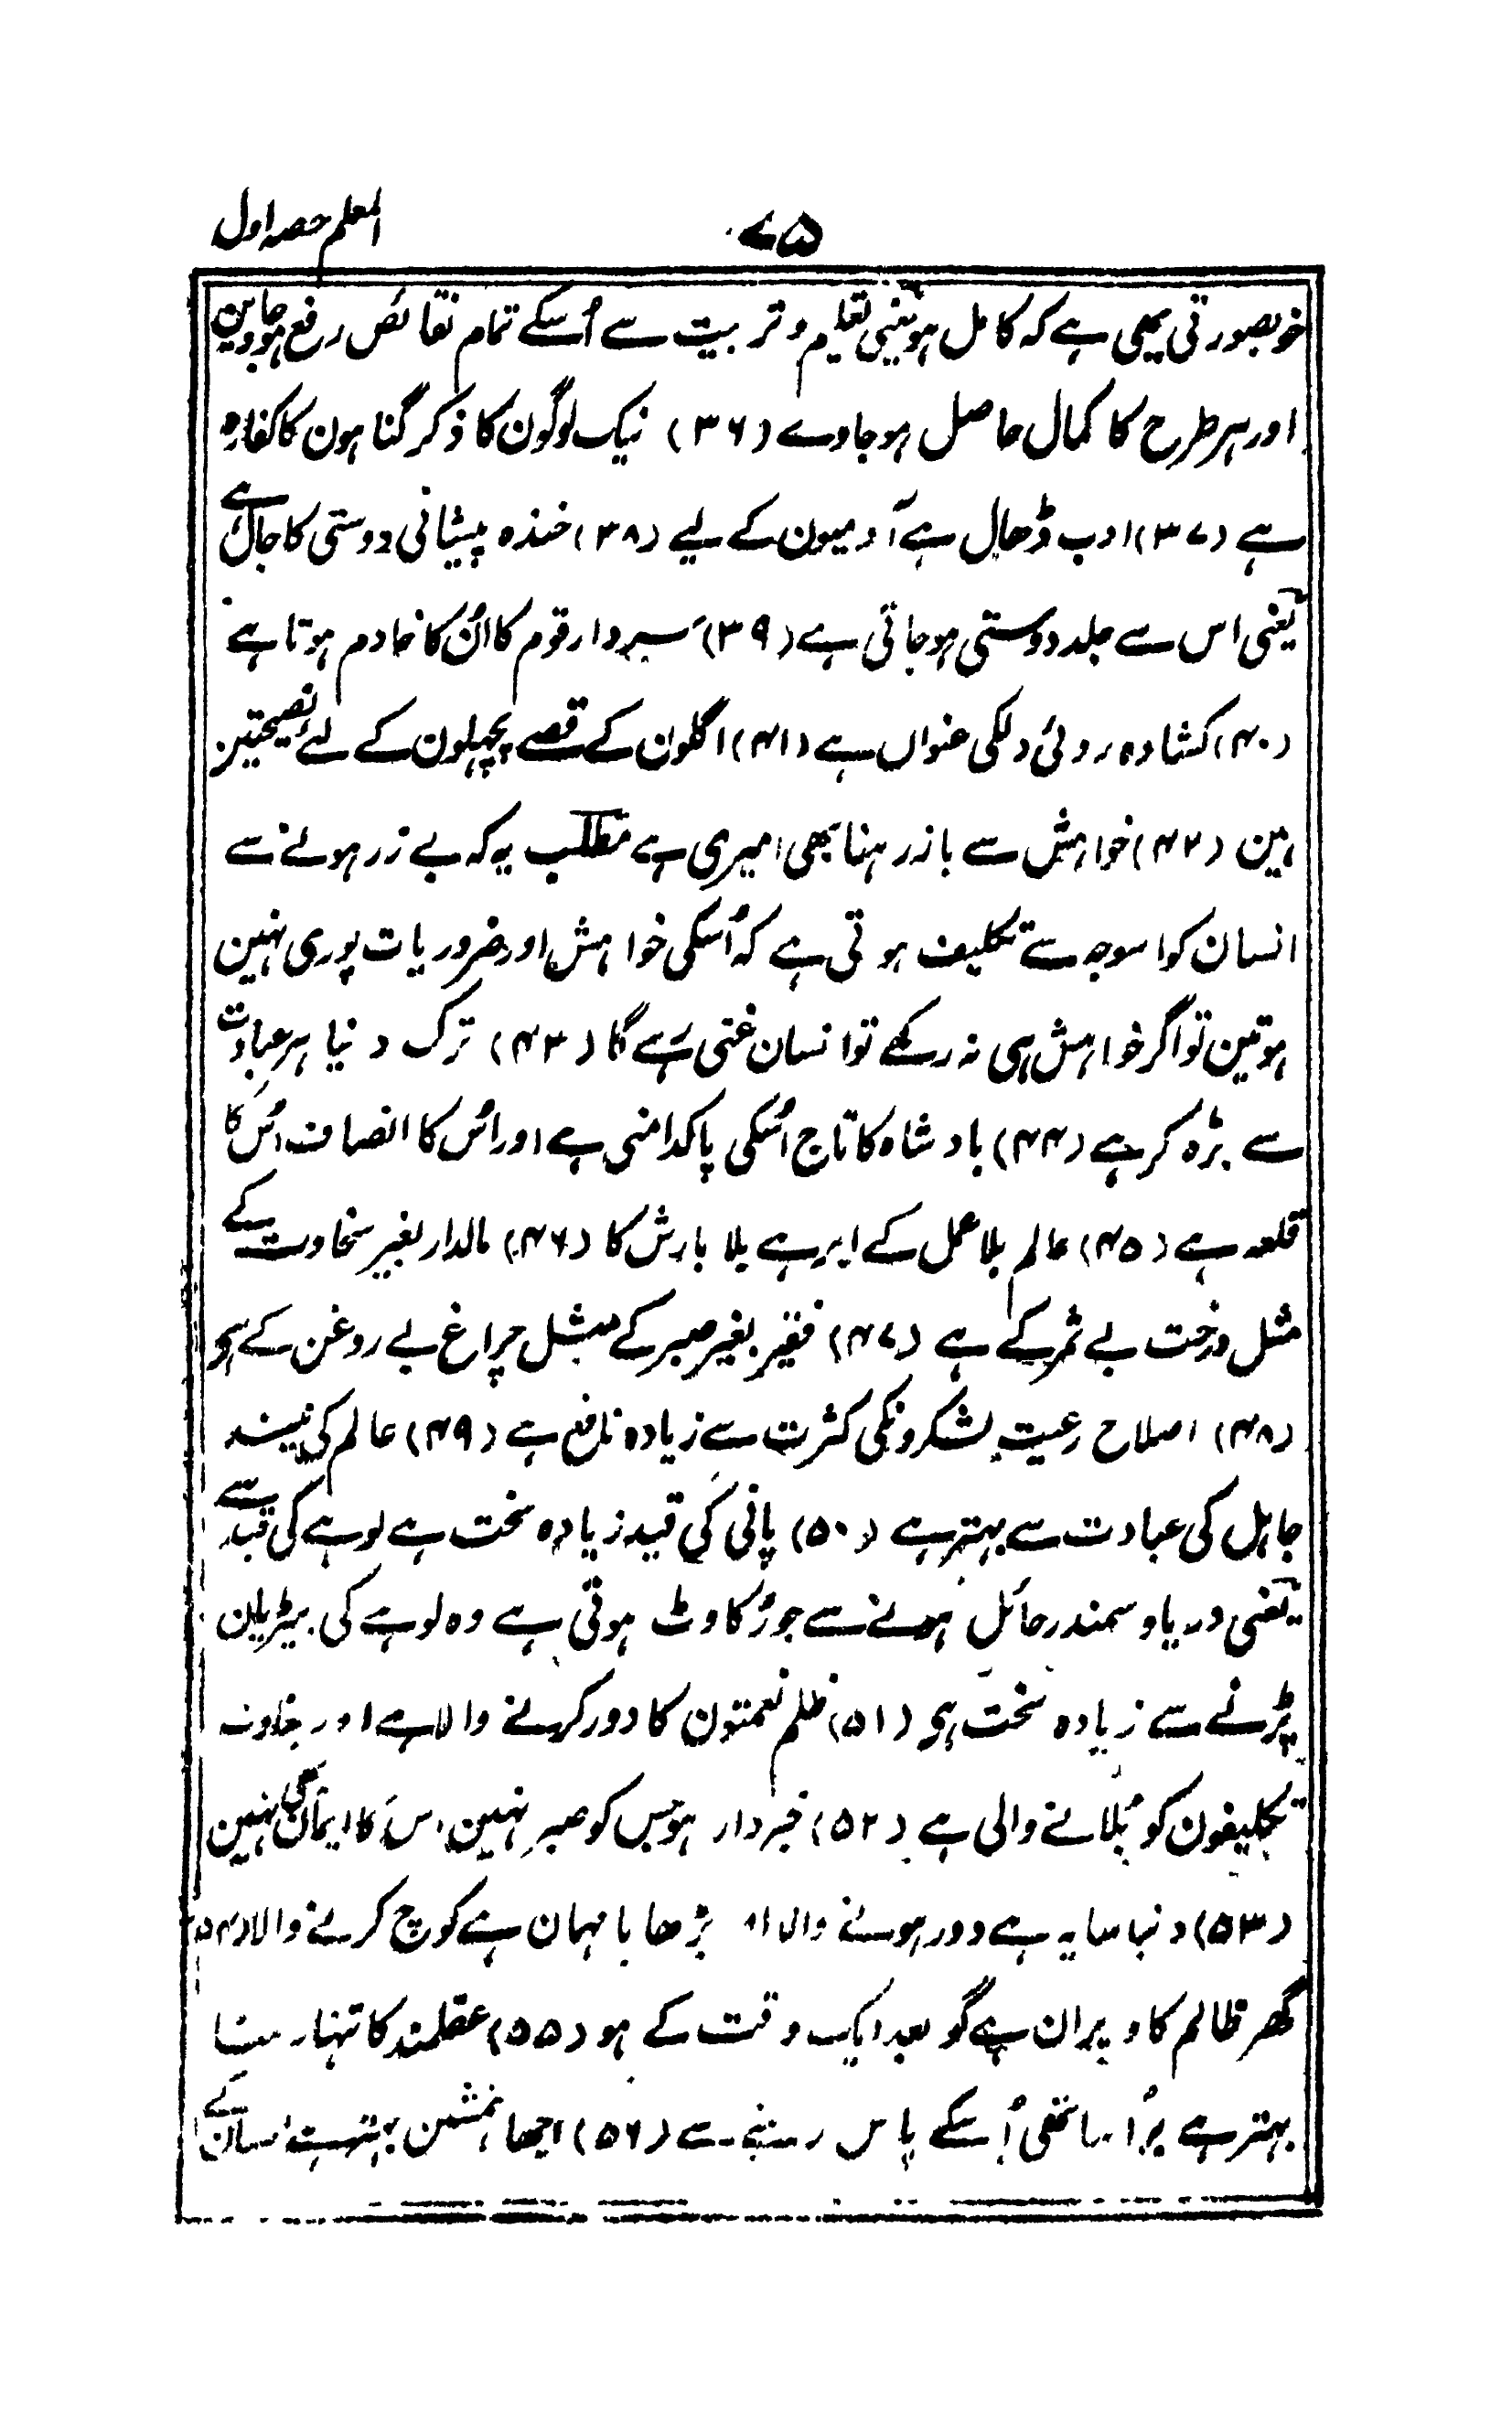 المعلم حصہ اول
۷۵
خوبصورتی یھی ہے کہ کامل ہو یعنی تعلیم و تربیت سے اُسکے تمام نقائص رفع ہو جاوین
اور ہر طرح کا کمال حاصل ہو جاوے (۳۶) نیک لوگون کا ذکر گناہون کا کفارہ
ہے (۳۷) ادب ڈھال ہے آدمیون کے لیے (۳۸) خندہ پیشانی دوستی کا جال ہے
یعنی اس سے جلد دوستی ہو جاتی ہے (۳۹) سردار قوم کا اُن کا خادم ہوتا ہے
(۴۰) کشادہ روئی دلکی عنوان ہے (۴۱) اگلون کے قصے پچھلون کے لئے نصیحتین
ہین (۴۲) خواہش سے باز رہنا بھی امیری ہے مطلب یہ کہ بے زر ہونے سے
انسان کو اسوجہ سے تکلیف ہوتی ہے کہ اُسکی خواہش اور ضروریات پوری نہین
ہوتین تو اگر خواہش ہی نہ رکھے تو انسان غنی رہے گا (۴۳) ترک دنیا ہر عبادت
سے بڑہ کر ہے (۴۴) بادشاہ کا تاج اُسکی پاکدامنی ہے اور اُس کا انصاف اُس کا
قلعہ ہے (۴۵) عالم بلا عمل کے ابر ہے بلا بارش کا (۴۶) مالدار بغیر سخاوت کے
مثل درخت بے ثمر کے ہے (۴۷) فقیر بغیر صبر کے مثل چراغ بے روغن کے ہی
(۴۸) اصلاح رعیت لشکرونکی کثرت سے زیادہ نافع ہے (۴۹) عالم کی نیند
جاہل کی عبادت سے بہتر ہے (۵۰) پانی کی قید زیادہ سخت ہے لوہے کی قید سے
یعنی دریا و سمندر حائل ہونے سے جو رُکاوٹ ہوتی ہے وہ لوہے کی بیڑیان
پڑنے سے زیادہ سخت ہی (۵۱) ظلم نعمتون کا دور کرنے والا ہے اور بغاوت
تکلیفون کو بُلانے والی ہے (۵۲) خبردار ہو جس کو صبر نہین اس کا ایمان ہی نہین
(۵۳) دنیا سایہ ہے دور ہونے والا اور بڑھاپا مہمان ہے کوچ کرنے والا (۵۴)
گھر ظالم کا ویران ہے گو بعد ایک وقت کے ہو (۵۵) عقلمند کا تنہا رہنا
بہتر ہے بُرا ساتھی اُسکے پاس رہنے سے (۵۶) اچھا ہمنشین بہتر ہے انسان کے